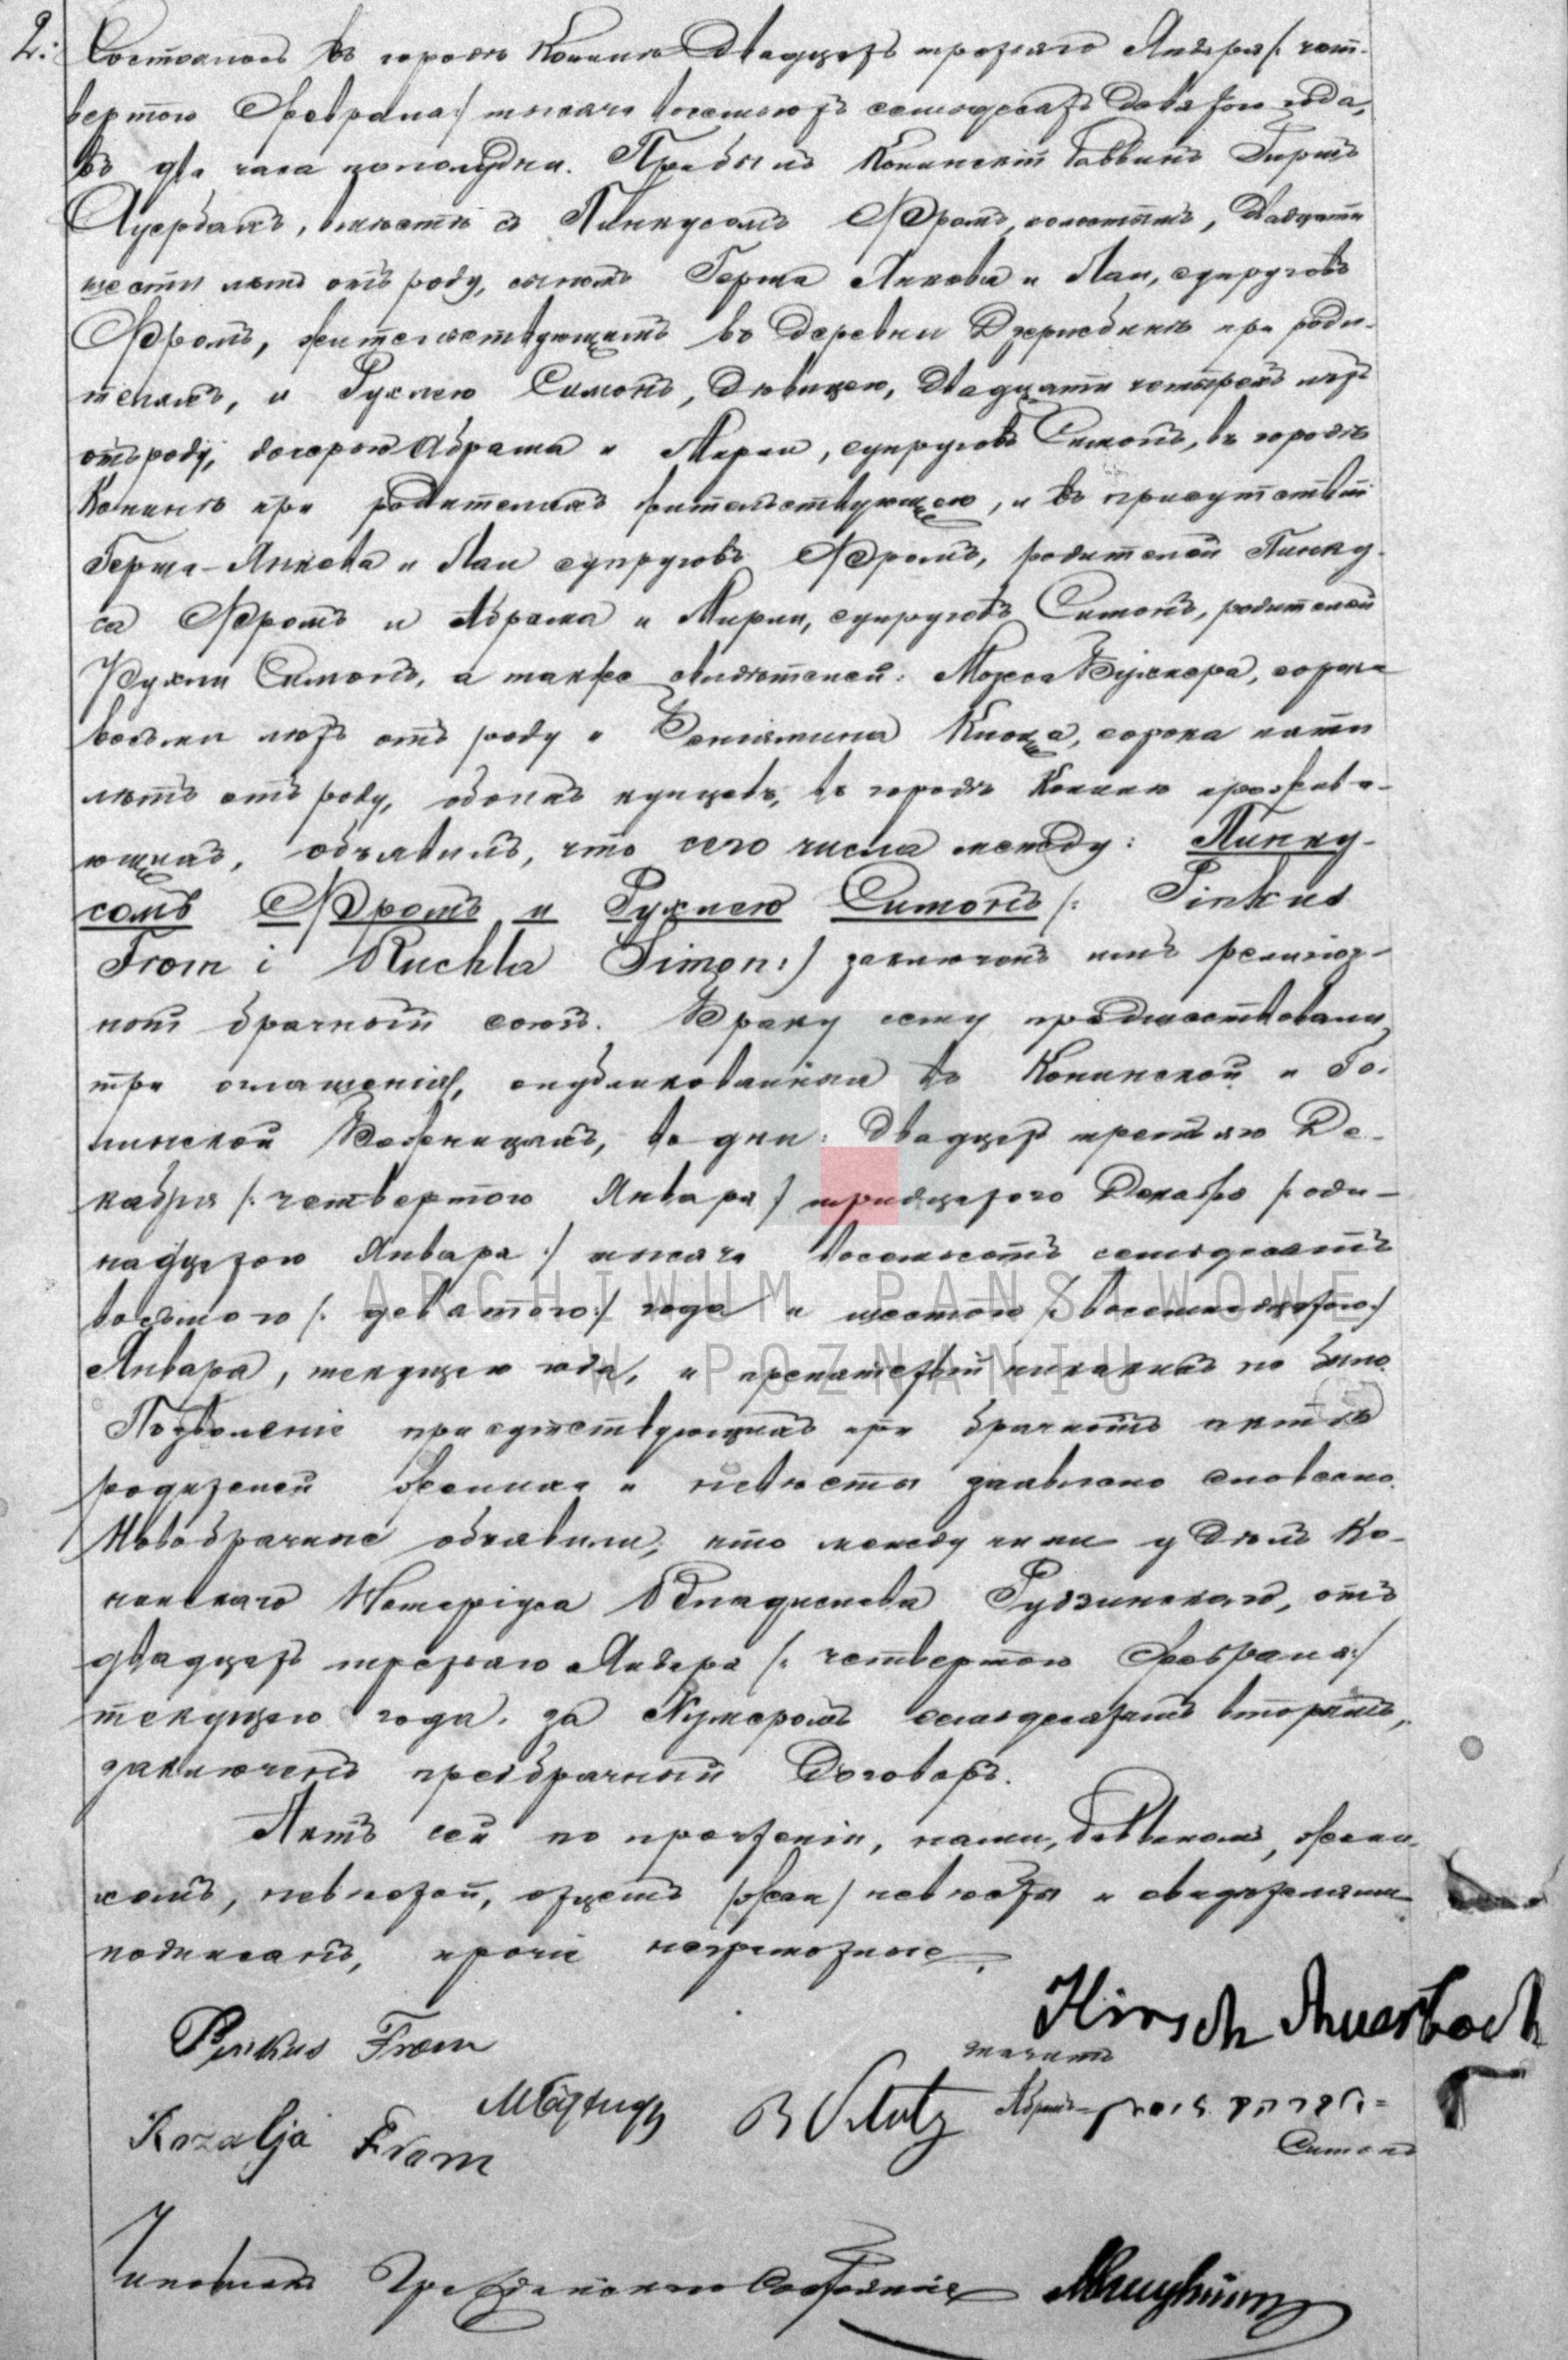 2. Состоялось въ городѣ Конинѣ Двадцать третьяго Января /: чет-
вертаго Февраля :/ тысяча восемьсотъ семьдесятъ девятаго года,
въ два часа пополудни. Прибылъ Конинскій Раввинъ Гиршъ
Ауербахъ, вмѣстѣ съ Пинкусомъ Фромъ, холостымъ, двадцати
шести лѣтъ отъ роду, сыномъ Герша Янкева и Лаи, супруговъ
Фромъ, жительствующимъ въ деревни при роди-
теляхъ, и Рухлею Симонъ, дѣвицею, двадцати четырехъ лѣтъ
отъ роду, дочерью Абрама и Мирли, супруговъ Симонъ, въ городѣ
Конинѣ при родителяхъ жительствующею, и въ присутствіи
Герша-Янкева и Лаи супруговъ Фромъ, родителей Пинку-
са Фромъ и Абрама и Мирли, супруговъ Симонъ, родителей
Рухли Симонъ, а также свидѣтелей: сорока
восьми лѣтъ отъ роду и Веніямина сорока пяти
лѣтъ отъ роду, обоихъ купцовъ, въ городѣ Конинѣ прожива-
ющихъ, объявилъ, что сего числа между: Пинку-
сомъ Фромъ и Рухлею Симонъ /: Pinkus
From i Ruchla Simon :/ заключенъ имъ религіоз-
ный брачный союзъ. Браку сему предшествовали
три оглашенія, опубликованныя въ Конинской и Го-
линской Божницахъ, во дни: двадцать третьяго Де-
кабря /: четвертаго Января :/ тридцатаго Декабря /: оди-
надцатаго Января :/ тысяча восемьсотъ семьдесятъ
восьмого /: девятаго :/ года и шестого /: восемнадцатаго :/
Января, текущего года, и препятствій никакихъ не было.
Позволеніе присутствующихъ при брачномъ актѣ
родителей жениха и невѣсты заявлено словесно.
Новобрачные объявили, что между ними у Дѣлъ Ко-
нинскаго Нотаріуса отъ
двадцать третьяго Января /: четвертаго Февраля :/
текущего года за Нумеромъ семьдесятымъ вторымъ,
заключенъ предбрачный Договоръ.
Актъ сей по прочтеніи, нами, Раввиномъ, жени-
хомъ, невѣстой, отцемъ невѣсты и свидѣтелями
подписанъ, прочіе неграмотные.
Hirsch Auerbach
Pinkus From
значитъ
Абрамъ
Rozalja From
Симонъ
Чиновникъ Гражданскаго Состоянія
ARCHIWUM PAŃSTWOWE
W POZNANIU